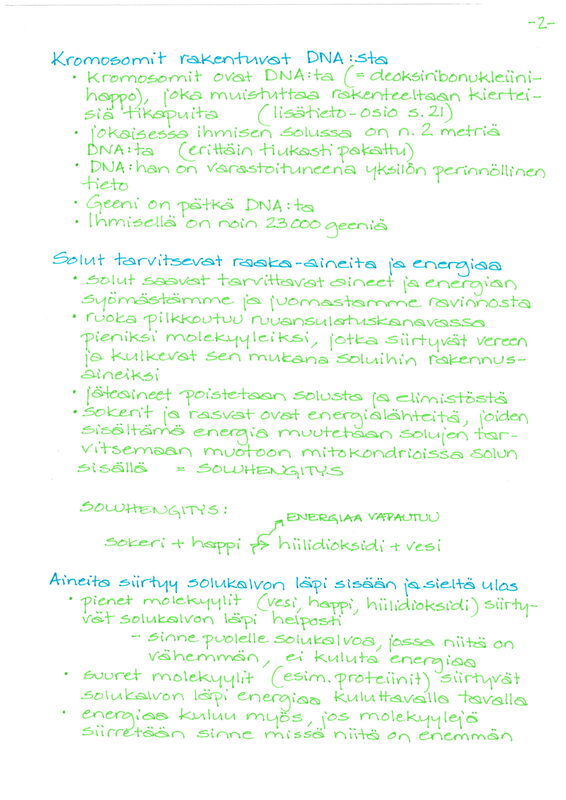 -2-
Kromosomit rakentuvat DNA:sta
• Kromosomit ovat DNA:ta (= deoksiribonukleiini-
happo), joka muistuttaa rakenteeltaan kiertei-
siä tikapuita (lisätieto-osio s. 21)
• jokaisessa ihmisen solussa on n. 2 metriä
DNA:ta (erittäin tiukasti pakattu)
• DNA:han on varastoituneena yksilön perinnöllinen
tieto
• Geeni on pätkä DNA:ta
• Ihmisellä on noin 23 000 geeniä
Solut tarvitsevat raaka-aineita ja energiaa
• solut saavat tarvittavat aineet ja energian
syömästämme ja juomastamme ravinnosta
• ruoka pilkkoutuu ruuansulatuskanavassa
pieniksi molekyyleiksi, jotka siirtyvät vereen
ja kulkevat sen mukana soluihin rakennus-
aineiksi
• jäteaineet poistetaan solusta ja elimistöstä
• sokerit ja rasvat ovat energialähteitä, joiden
sisältämä energia muutetaan solujen tar-
vitsemaan muotoon mitokondrioissa solun
sisällä = SOLUHENGITYS
SOLUHENGITYS:
ENERGIAA VAPAUTUU
sokeri + happi → hiilidioksidi + vesi
Aineita siirtyy solukalvon läpi sisään ja sieltä ulos
• pienet molekyylit (vesi, happi, hiilidioksidi) siirty-
vät solukalvon läpi helposti
- sinne puolelle solukalvoa, jossa niitä on
vähemmän, ei kuluta energiaa
• suuret molekyylit (esim. proteiinit) siirtyvät
solukalvon läpi energiaa kuluttavalla tavalla
• energiaa kuluu myös, jos molekyylejä
siirretään sinne missä niitä on enemmän